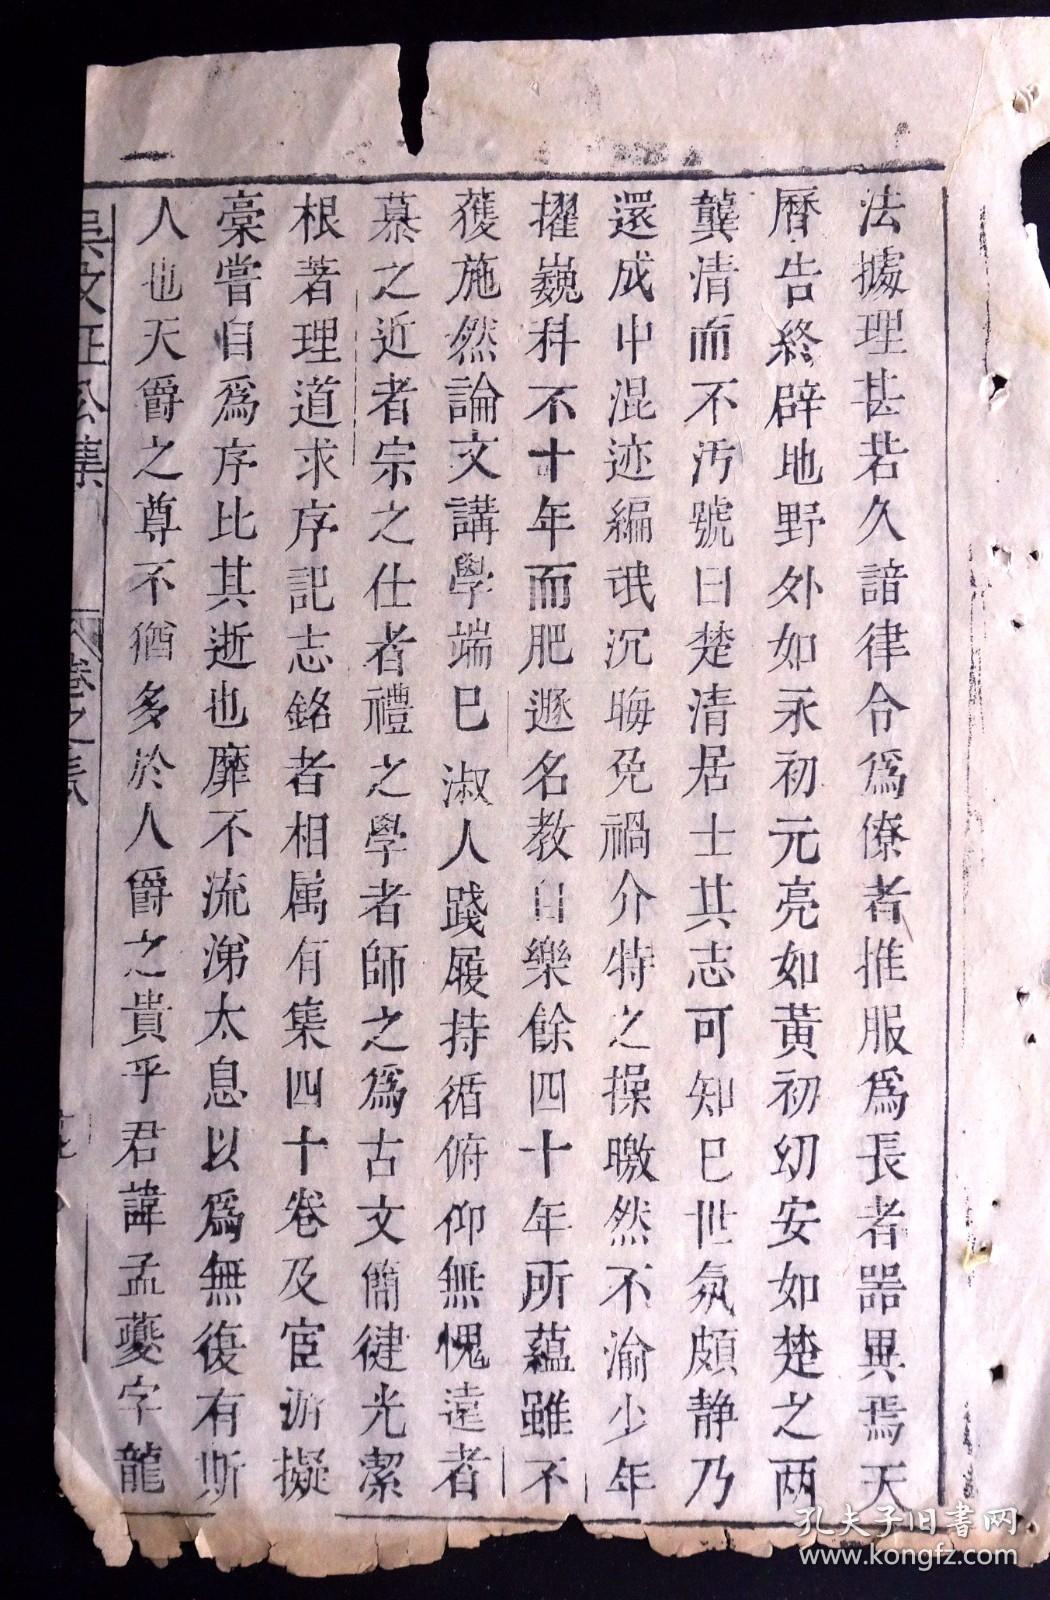 法據理甚若久諳律令爲僚者推服爲長者噐異焉天
曆告終辟地野外如永初元亮如黃初幼安如楚之两
龔清而不汚號曰楚清居士其志可知巳世氛頗静乃
還成中混迹編氓沉晦免禍介特之操曒然不渝少年
擢巍科不十年而肥遯名教日樂餘四十年所蘊雖不
獲施然論文講學端巳淑人踐履持循俯仰無愧遠者
慕之近者宗之仕者禮之學者師之爲古文簡健光潔
根著理道求序記志銘者相属有集四十卷及宦游擬
稾嘗自爲序比其逝也靡不流涕太息以爲無復有斯
人也天爵之尊不猶多於人爵之貴乎君諱孟夔字龍
吳文正公集 卷之
孔夫子旧書网
www.kongfz.com